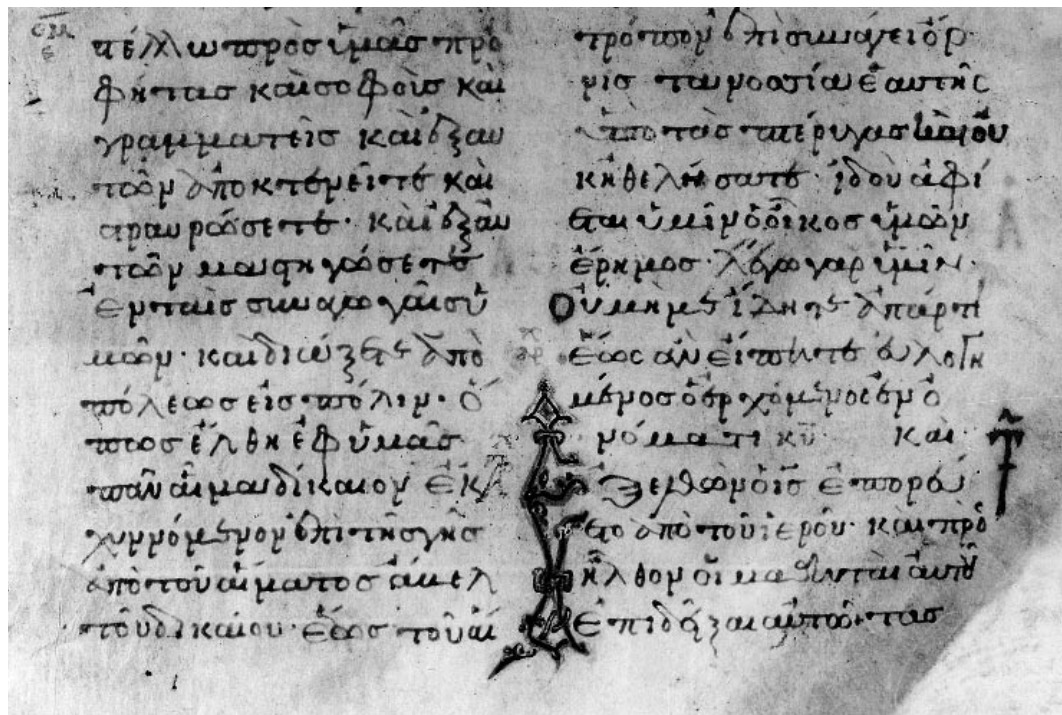 στέλλω πρὸς ὑμᾶς προ
φήτας καὶ σοφοὺς καὶ
γραμματεῖς καὶ ἐξ αυ
τῶν ἀποκτενεῖτε καὶ
σταυρώσετε· καὶ ἐξ αυ
τῶν μαστιγώσετε
ἐν ταῖς συναγωγαῖς ὑ
μῶν· καὶ διώξετε ἀπὸ
πόλεως εἰς πόλιν· ὅ
πως ἔλθη ἐφ ὑμᾶς
πᾶν αἷμα δίκαιον ἐκ
χυννόμενον ἐπὶ τῆς γῆς
ἀπὸ τοῦ αἵματος ἅβελ
τοῦ δικαίου· ἕως τοῦ αἵ
τρόπον ἐπισυνάγει ὄρ
νις τα νοσσία ἑαυτῆς
ὑπὸ τὰς πτέρυγας καὶ οὐ
κ ἠθελήσατε· ἰδοὺ ἀφί
εται ὑμῖν ὁ οἶκος ὑμῶν
ἔρημος· λέγω γαρ ὑμῖν·
Οὐ μή με ἴδητε ἀπάρτι
ἕως ἂν εἴπητε εὐλογη
μένος ὁ ἐρχόμενος ἐν ὀ
νόματι κ̅υ̅· καὶ
ἐξελθὼν ὁ ι̅ς̅ ἐπορεύ
ετο ἀπὸ τοῦ ἱεροῦ· καὶ προσ
ῆλθον οἱ μαθηταὶ αὐτοῦ
ἐπιδεῖξαι αὐτῶ τὰς